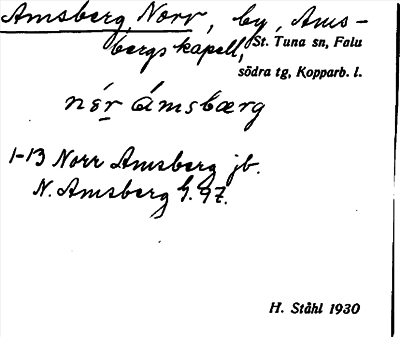 Amsberg, Norr, by, Ams-
bergs kapell, St. Tuna sn, Falu
södra tg, Kopparb. l.
nór ámsbærg
1-13 Norr Amsberg jb.
N. Amsberg G. 97.
H. Ståhl 1930